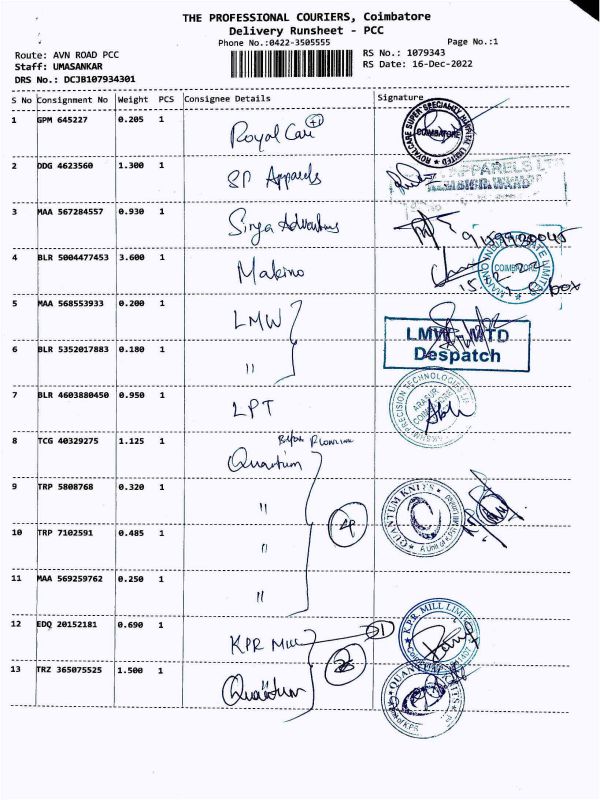 THE PROFESSIONAL COURIERS, Coimbatore
Delivery Runsheet - PCC
Phone No.:0422-3505555 Page No.:1
Route: AVN ROAD PCC RS No.: 1079343
Staff: UMASANKAR RS Date: 16-Dec-2022
DRS No.: DCJB107934301
S No Consignment No Weight PCS Consignee Details Signature
1 GPM 645227 0.205 1 Royal Care
ROYALCARE SUPER SPECIALITY HOSPITAL LIMITED COIMBATORE
2 DDG 4623560 1.300 1 SP Apparels
APPARELS LTD
3 MAA 567284557 0.930 1
4 BLR 5004477453 3.600 1 Makino
COIMBATORE
box
5 MAA 568553933 0.200 1 LMW
6 BLR 5352017883 0.180 1 "
LMW - MTD
Despatch
7 BLR 4603880450 0.950 1 LPT
PRECISION TECHNOLOGIES
8 TCG 40329275 1.125 1 Quantum
9 TRP 5808768 0.320 1 "
QUANTUM KNITS
A Unit of KPR
4
10 TRP 7102591 0.485 1 "
11 MAA 569259762 0.250 1 "
12 EDQ 20152181 0.690 1 KPR Mill 1
KPR MILL LIMITED
2
13 TRZ 365075525 1.500 1 Quantum
QUANTUM KNITS
of KPR